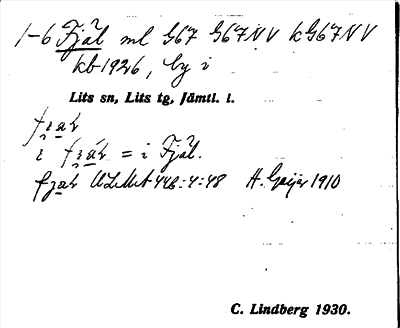 1-6 Fjäl ml G67 G67NV kG67NV
kb 1926, by i
Lits sn, Lits tg, Jämtl. l.
i = i Fjäl.
ULMA 448:4:48 H. Geijer 1910
C. Lindberg 1930.